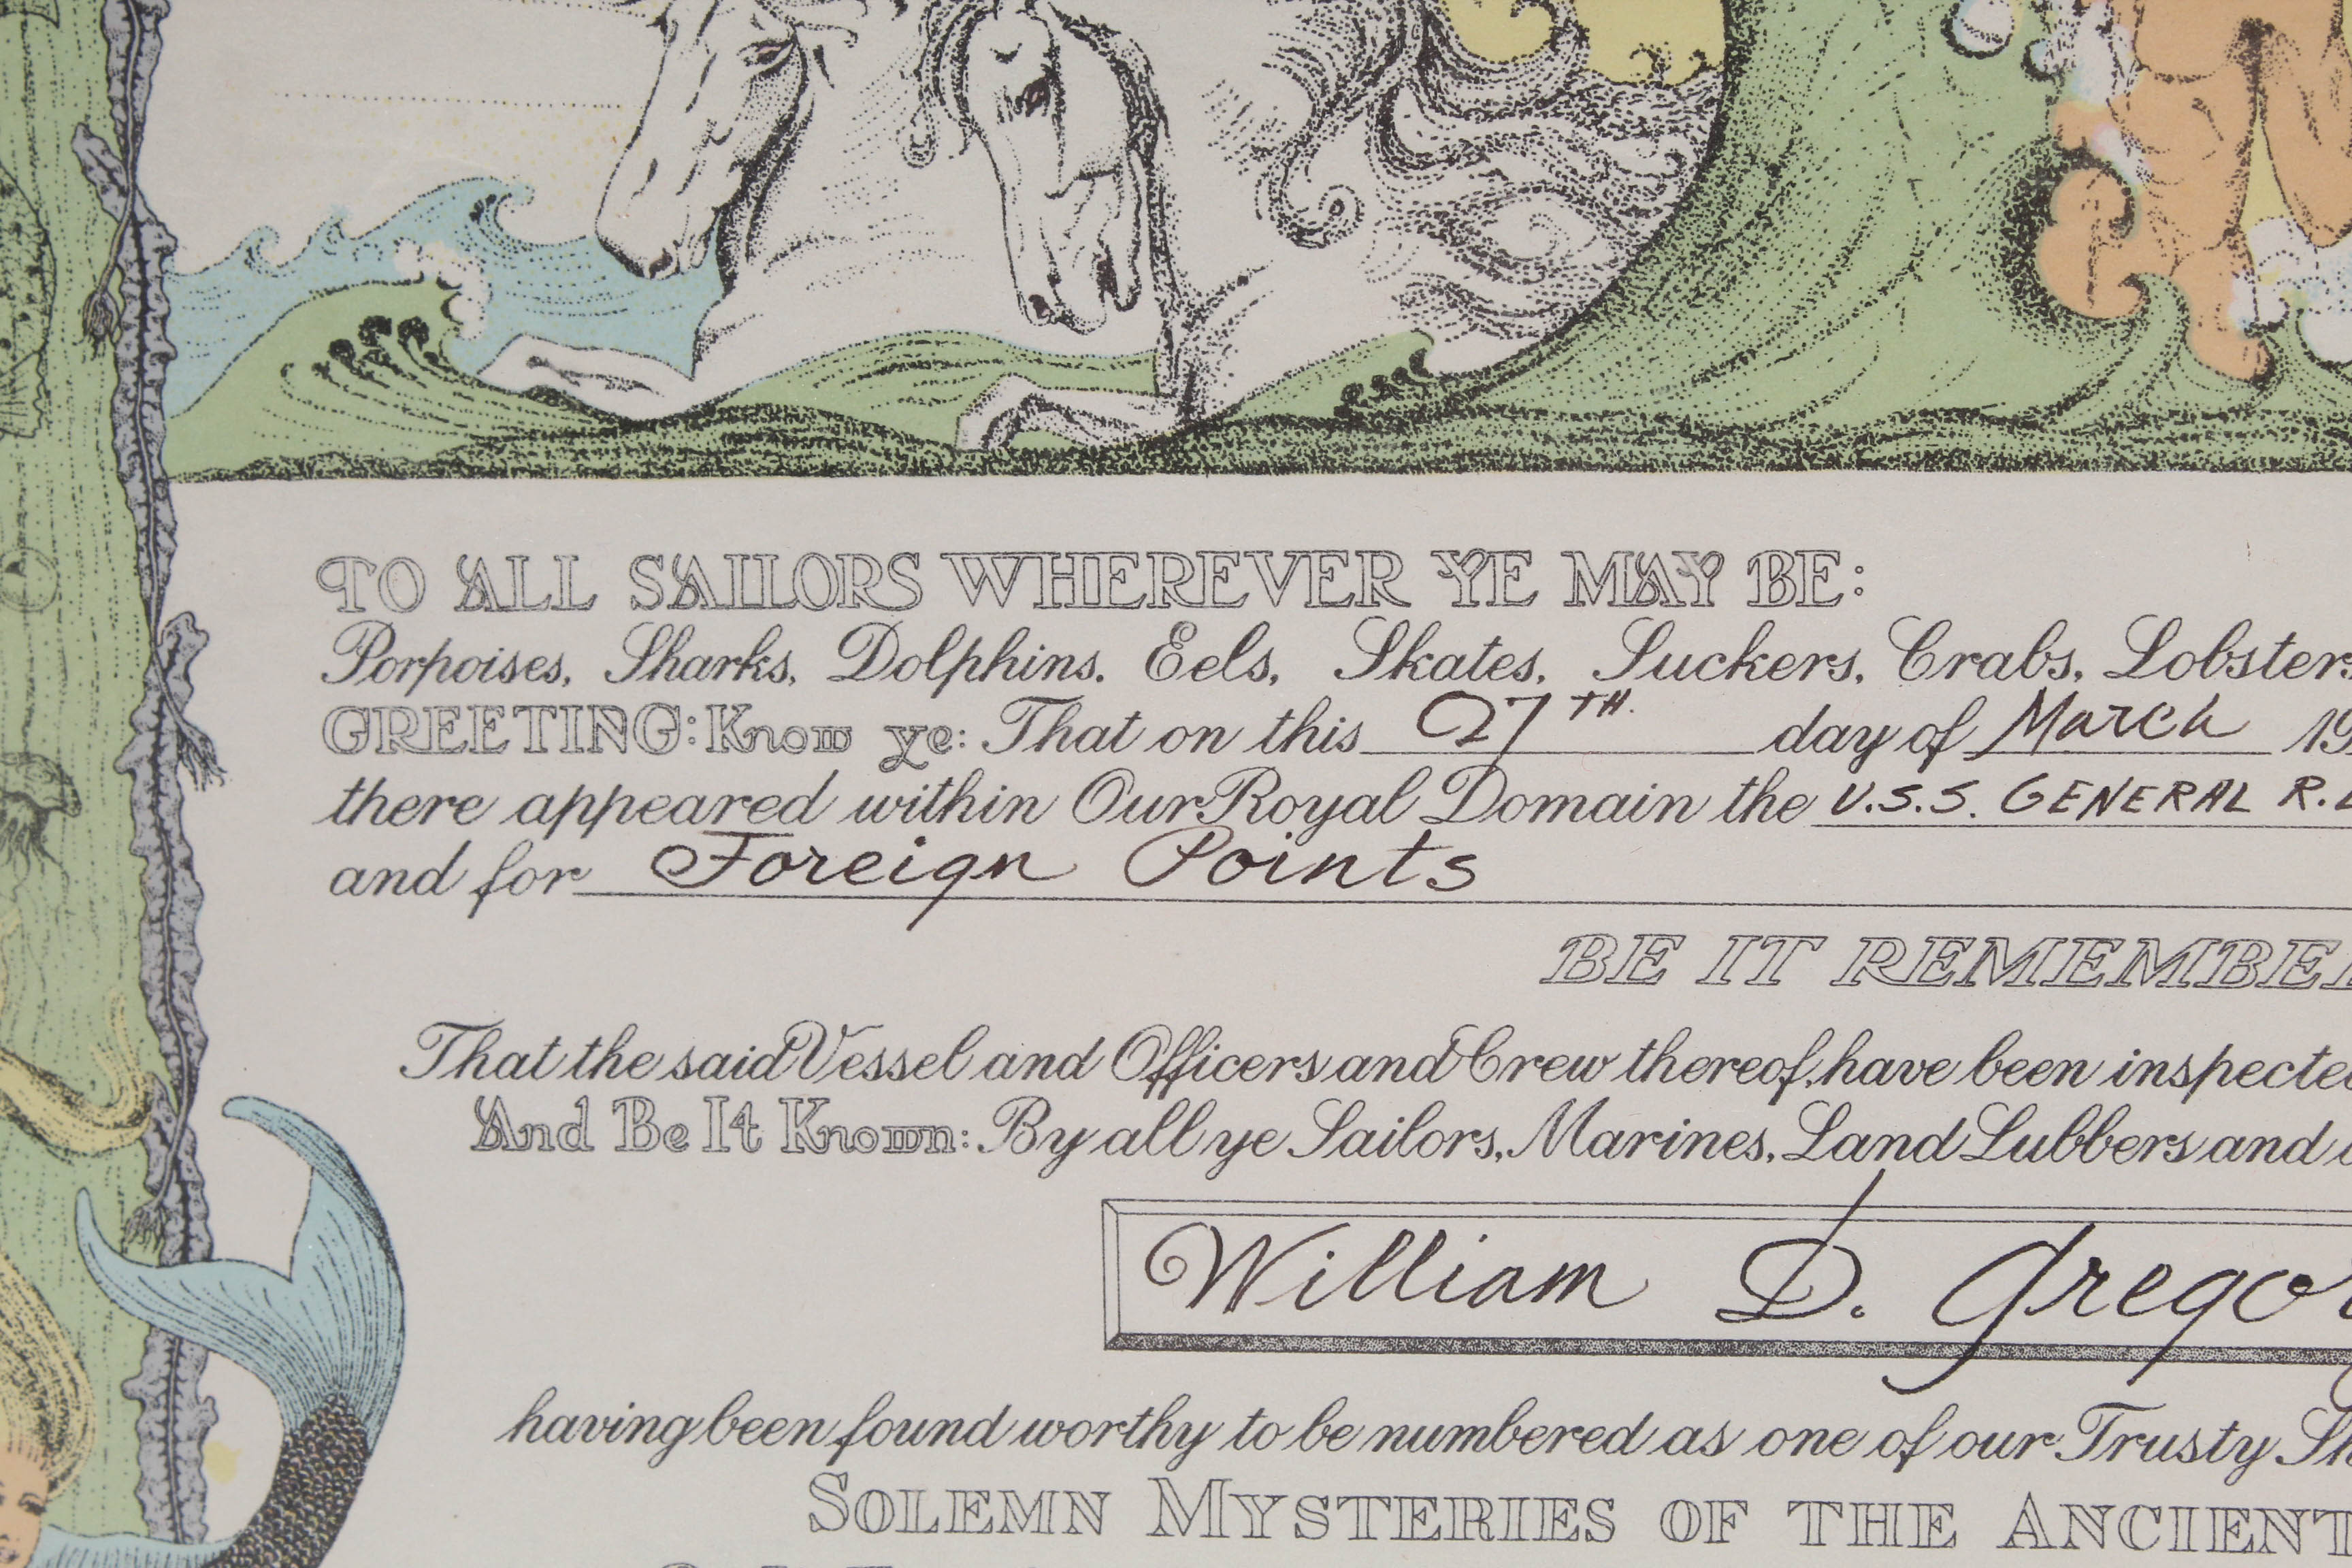 TO ALL SAILORS WHEREVER YE MAY BE:
Porpoises, Sharks, Dolphins, Eels, Skates, Suckers, Crabs, Lobsters
GREETING: Know ye: That on this 27TH. day of March 19
there appeared within Our Royal Domain the U.S.S. GENERAL R.
and for Foreign Points
BE IT REMEMBE
That the said Vessel and Officers and Crew thereof, have been inspected
And Be It Known: By all ye Sailors, Marines, Land Lubbers and
William D. Gregor
having been found worthy to be numbered as one of our Trusty Sh
SOLEMN MYSTERIES OF THE ANCIENT